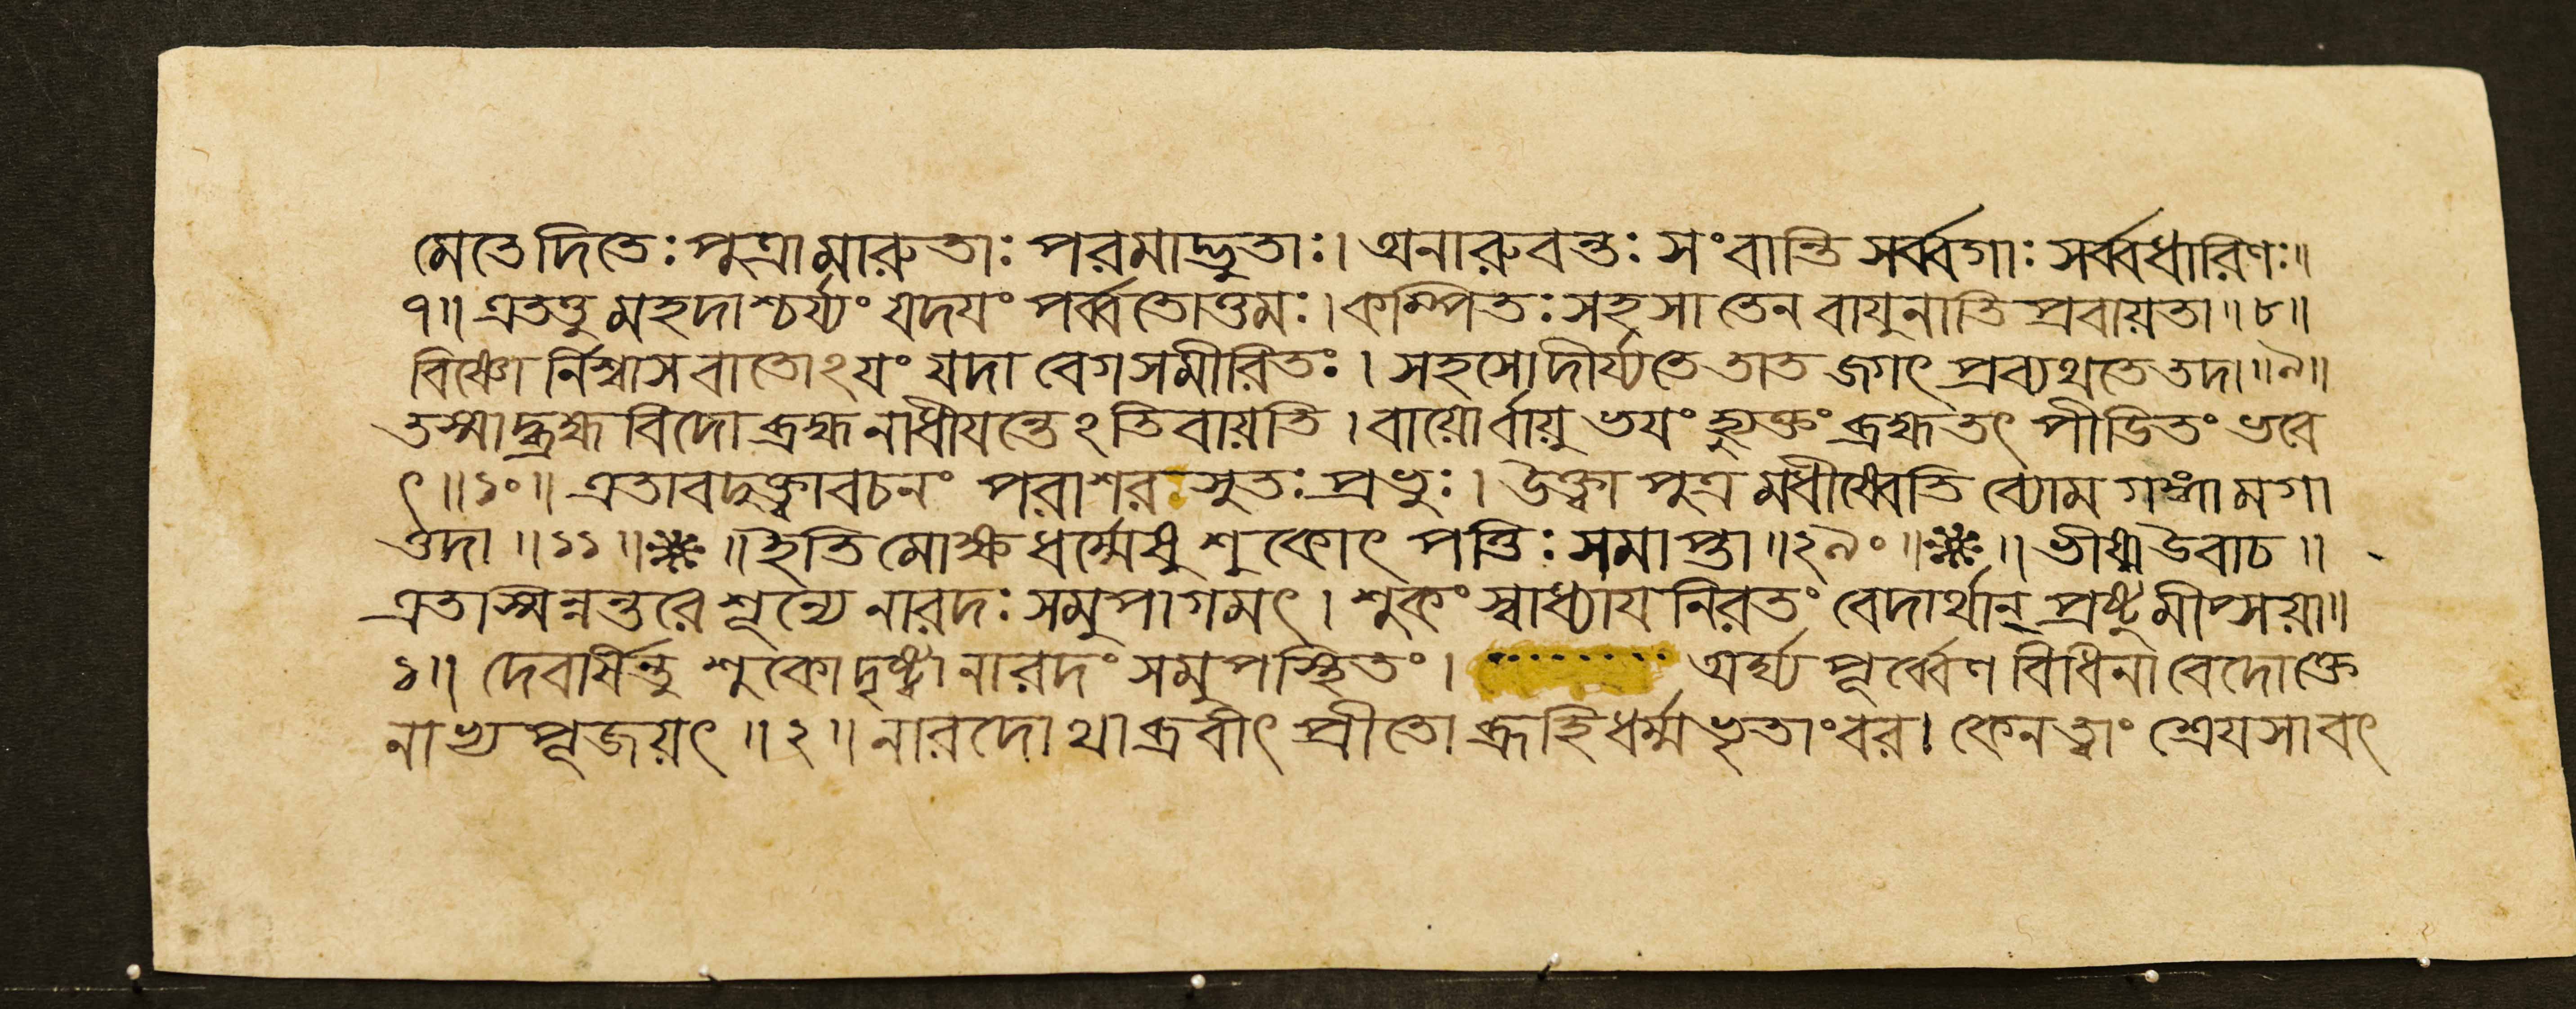 মেতে দিতেঃ পুত্রা মারুতাঃ পরমাদ্ভুতাঃ। অনারুবন্তঃ সংবান্তি সর্ব্বগাঃ সর্ব্বধারিণঃ॥
৭॥ এতত্তু মহদাশ্চর্য্যং যদয়ং পর্ব্বতোত্তমঃ। কম্পিতঃ সহসা তেন বায়ুনাতি প্রবায়তা॥৮॥
বিষ্ণো র্নিশ্বাস বাতোঽয়ং যদা বেগসমীরিতঃ। সহসোদীর্য্যতে তাত জগৎ প্রব্যথতে তদা॥৯॥
তস্মাদ্ব্রহ্ম বিদো ব্রহ্ম নাধীয়ন্তেঽতিবায়তি। বায়োর্বায়ু ভয়ং হ্যুক্তং ব্রহ্ম তৎ পীডিতং ভবে
ৎ॥১০॥ এতাবদুক্ত্বা বচনং পরাশর সুতঃ প্রভুঃ। উক্ত্বা পুত্র মধীষ্বেতি ব্যোম গঙ্গামগা
ত্তদা॥১১॥❋॥ ইতি মোক্ষ ধর্ম্মেষু শুকোৎপত্তিঃ সমাপ্তা॥২৯০॥❋॥ ভীষ্ম উবাচ॥
এতাস্মিন্নন্তরে শূন্যে নারদঃ সমুপাগমৎ। শুকং স্বাধ্যায় নিরতং বেদার্থান্ প্রষ্টুমীপ্সয়া॥
১॥ দেবর্ষিন্তু শুকো দৃষ্ট্বা নারদং সমুপস্থিতং। অর্ঘ্য পূর্ব্বেণ বিধিনা বেদোক্তে
নাভ্য পূজয়ৎ॥২॥ নারদোথাব্রবীৎ প্রীতো ব্রূহি ধর্ম্মভৃতাং বর। কেন ত্বাং শ্রেয়সা বৎ